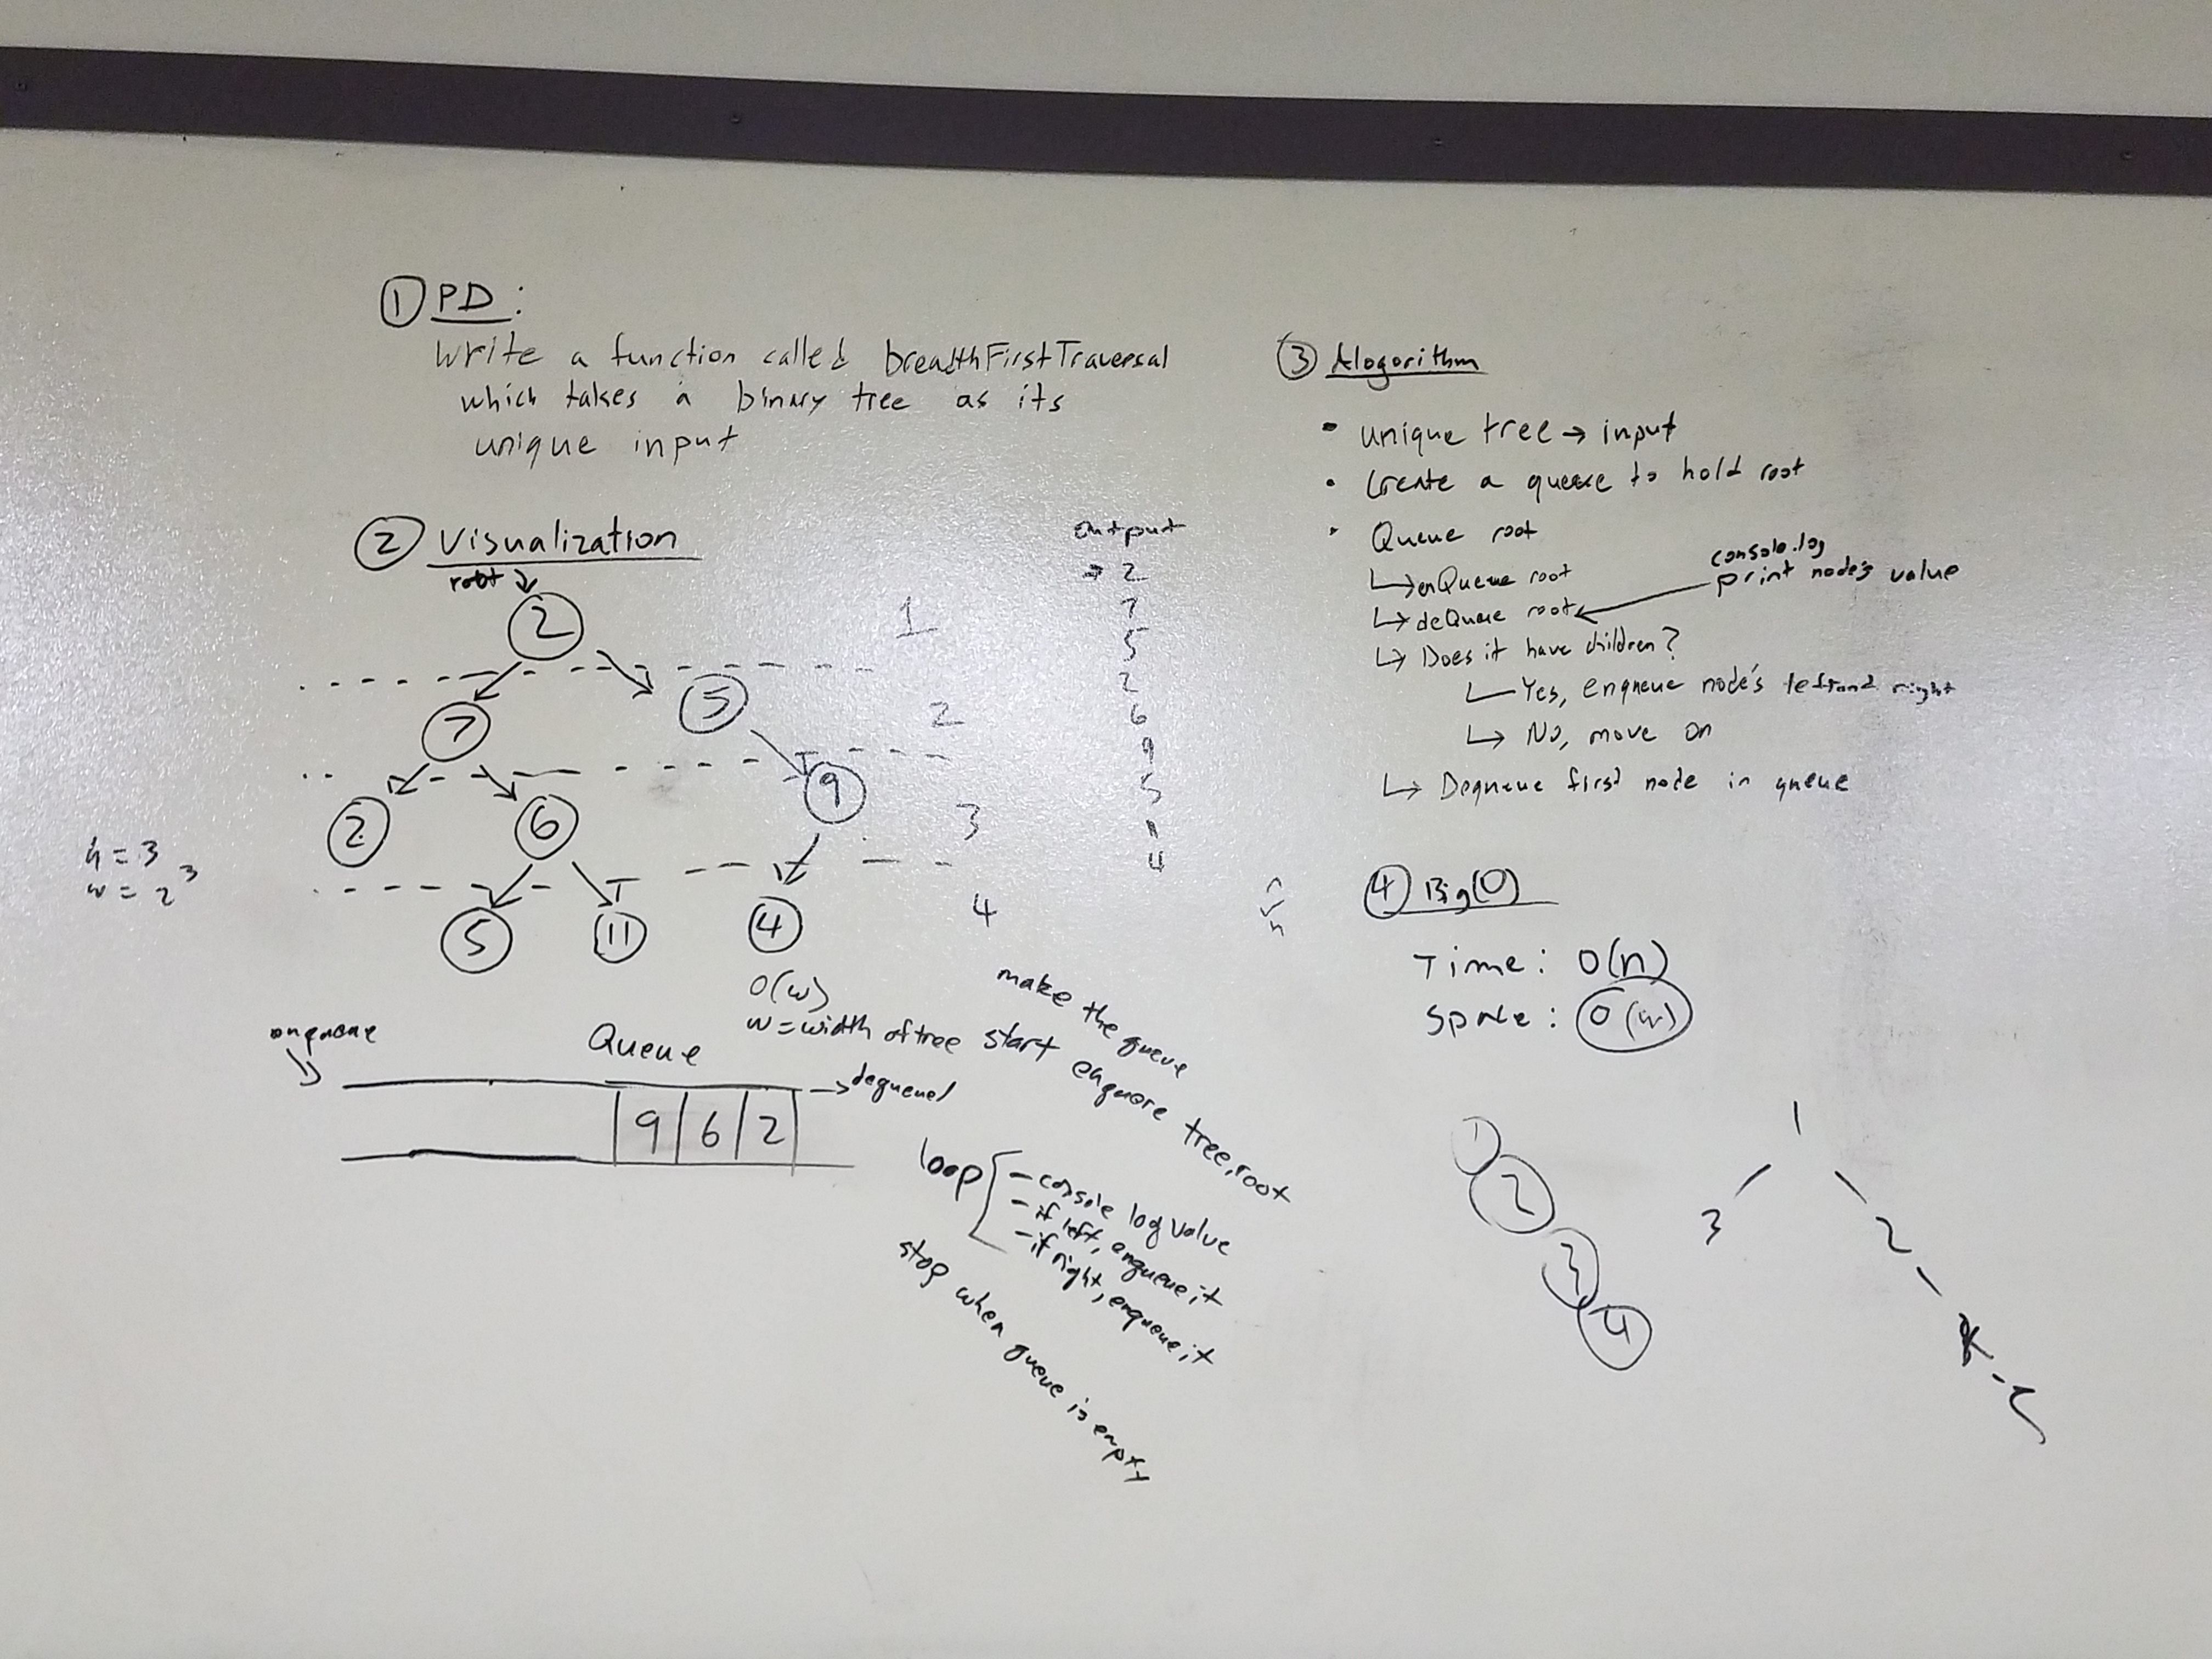 ① PD:
Write a function called breadthFirstTraversal
which takes a binary tree as its
unique input
② Visualization
root
2
7
5
2
6
9
5
11
4
1
2
3
4
output
→ 2
7
5
2
6
9
5
11
4
h = 3
w = 2³
O(w)
w = width of tree
enqueue
Queue
→ dequeue
9 6 2
make the queue
start enqueue tree.root
loop
- console log value
- if left, enqueue it
- if right, enqueue it
stop when queue is empty
③ Alogorithm
• unique tree → input
• Create a queue to hold root
• Queue root
↳ enQueue root
↳ deQueue root
console.log
print node's value
↳ Does it have children?
Yes, enqueue node's left and right
↳ No, move on
↳ Dequeue first node in queue
④ Big(O)
Time: O(n)
Space: O(w)
1
2
3
4
1
3 2